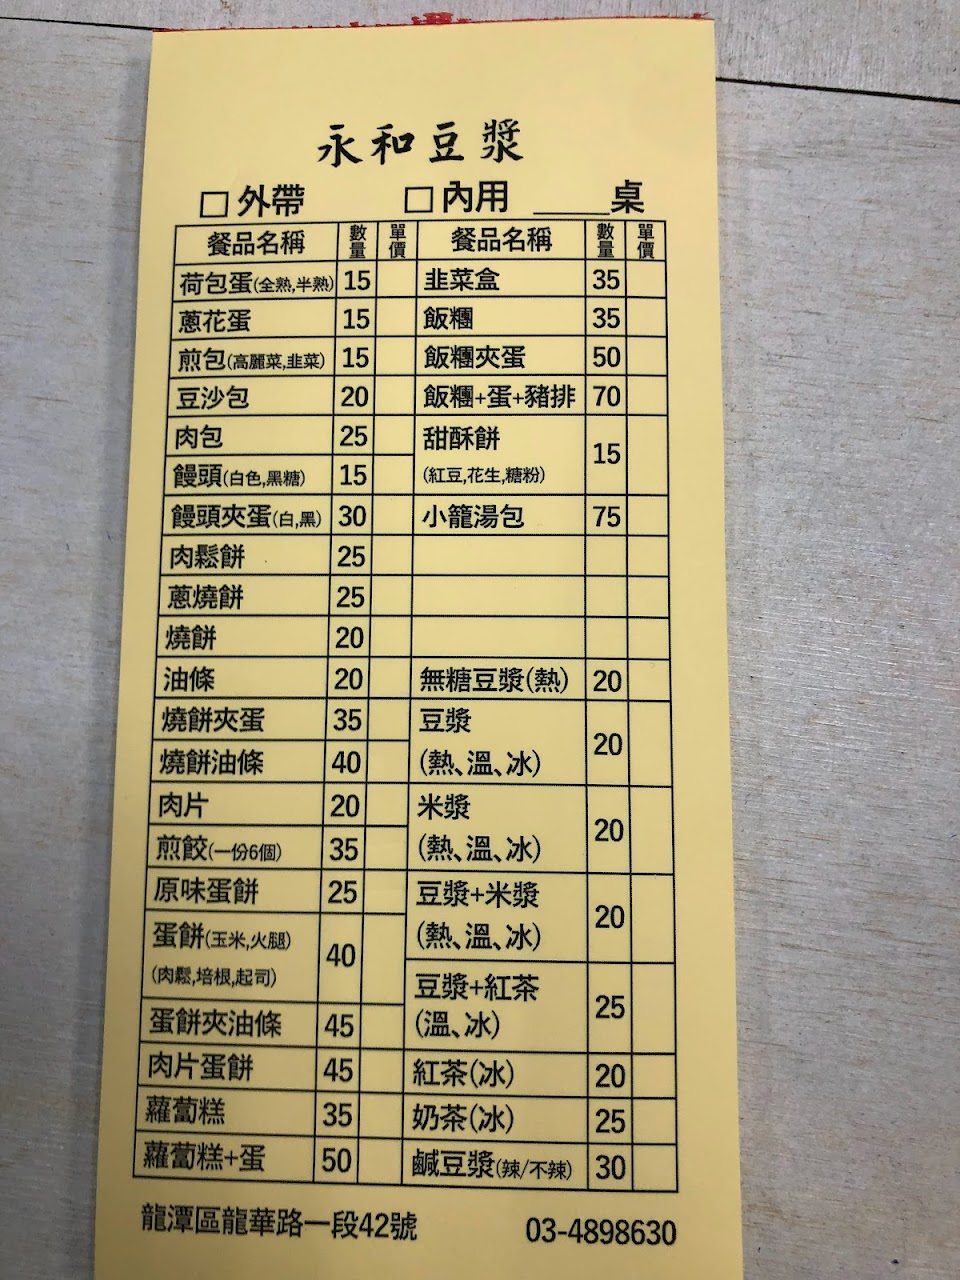 永和豆漿
□外帶 □內用 ____桌
餐品名稱 數量 單價 餐品名稱 數量 單價
荷包蛋(全熟,半熟) 15 韭菜盒 35
蔥花蛋 15 飯糰 35
煎包(高麗菜,韭菜) 15 飯糰夾蛋 50
豆沙包 20 飯糰+蛋+豬排 70
肉包 25 甜酥餅 15
饅頭(白色,黑糖) 15 (紅豆,花生,糖粉)
饅頭夾蛋(白,黑) 30 小籠湯包 75
肉鬆餅 25
蔥燒餅 25
燒餅 20
油條 20 無糖豆漿(熱) 20
燒餅夾蛋 35 豆漿 20
燒餅油條 40 (熱、溫、冰)
肉片 20 米漿 20
煎餃(一份6個) 35 (熱、溫、冰)
原味蛋餅 25 豆漿+米漿 20
蛋餅(玉米,火腿) 40 (熱、溫、冰)
(肉鬆,培根,起司) 豆漿+紅茶 25
蛋餅夾油條 45 (溫、冰)
肉片蛋餅 45 紅茶(冰) 20
蘿蔔糕 35 奶茶(冰) 25
蘿蔔糕+蛋 50 鹹豆漿(辣/不辣) 30
龍潭區龍華路一段42號 03-4898630